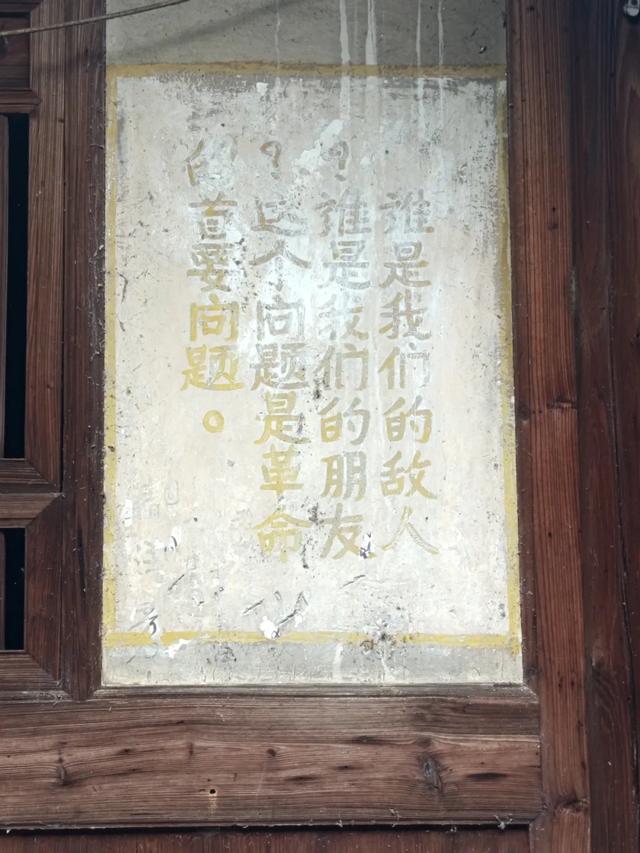 誰是我们的敌人
？誰是我们的朋友
？这个问题是革命
的首要问题。